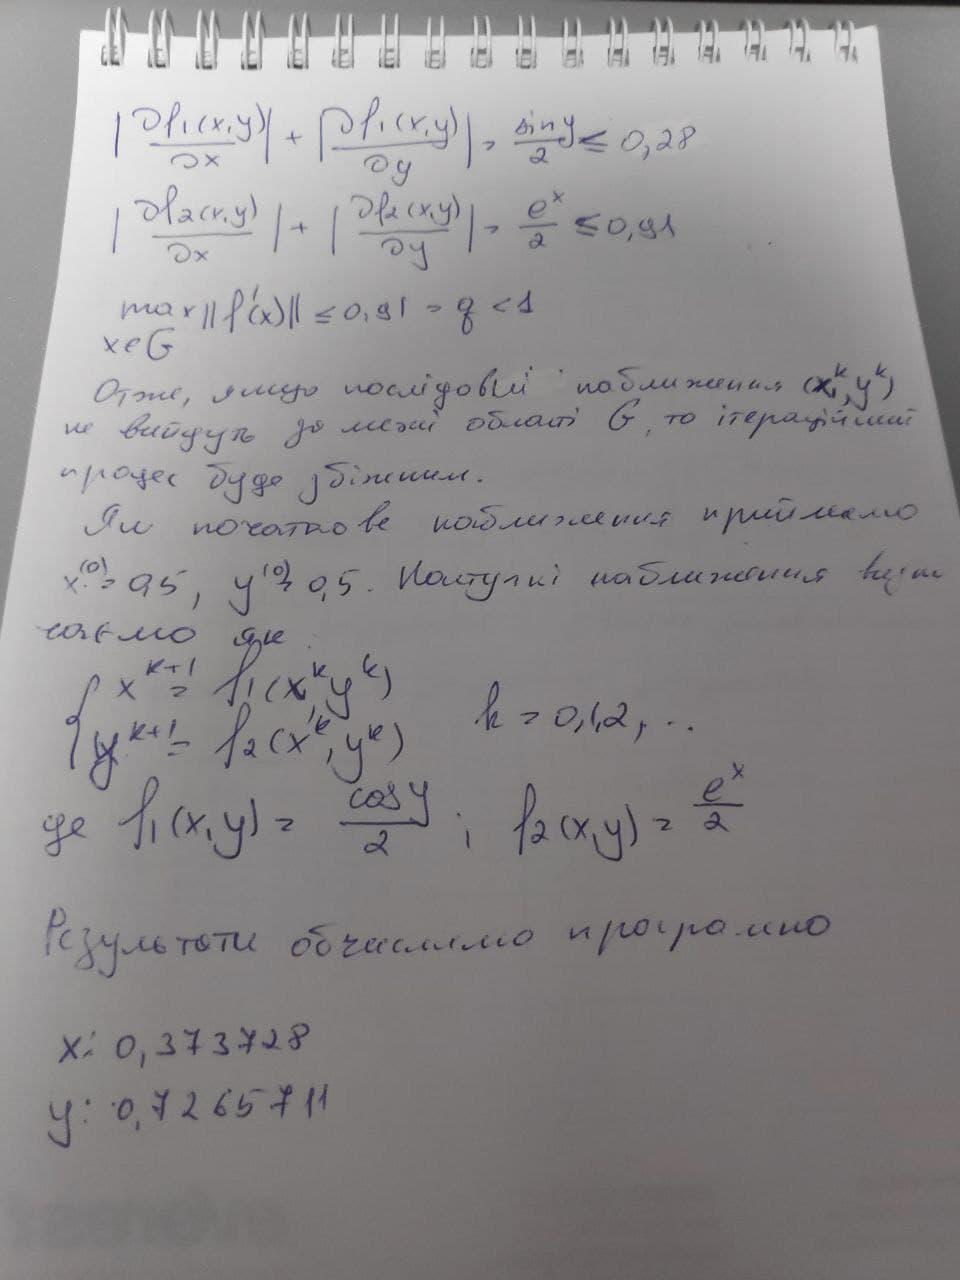 |∂f₁(x,y)/∂x| + |∂f₁(x,y)/∂y| = sin y/2 ≤ 0,28
|∂f₂(x,y)/∂x| + |∂f₂(x,y)/∂y| = eˣ/2 ≤ 0,91
max ||f'(x)|| ≤ 0,91 = q < 1
x∈G
Отже, якщо послідовні наближення (xᵏ, yᵏ)
не вийдуть до межі області G, то ітераційний
процес буде збіжним.
Як початкове наближення приймемо
x⁽⁰⁾ = 0,5, y⁽⁰⁾ = 0,5. Наступні наближення визна
чаємо як:
{ xᵏ⁺¹ = f₁(xᵏ, yᵏ)
yᵏ⁺¹ = f₂(xᵏ, yᵏ) k = 0,1,2,...
де f₁(x,y) = cos y/2 ; f₂(x,y) = eˣ/2
Результати обчислимо програмно
x: 0,373728
y: 0,7265711